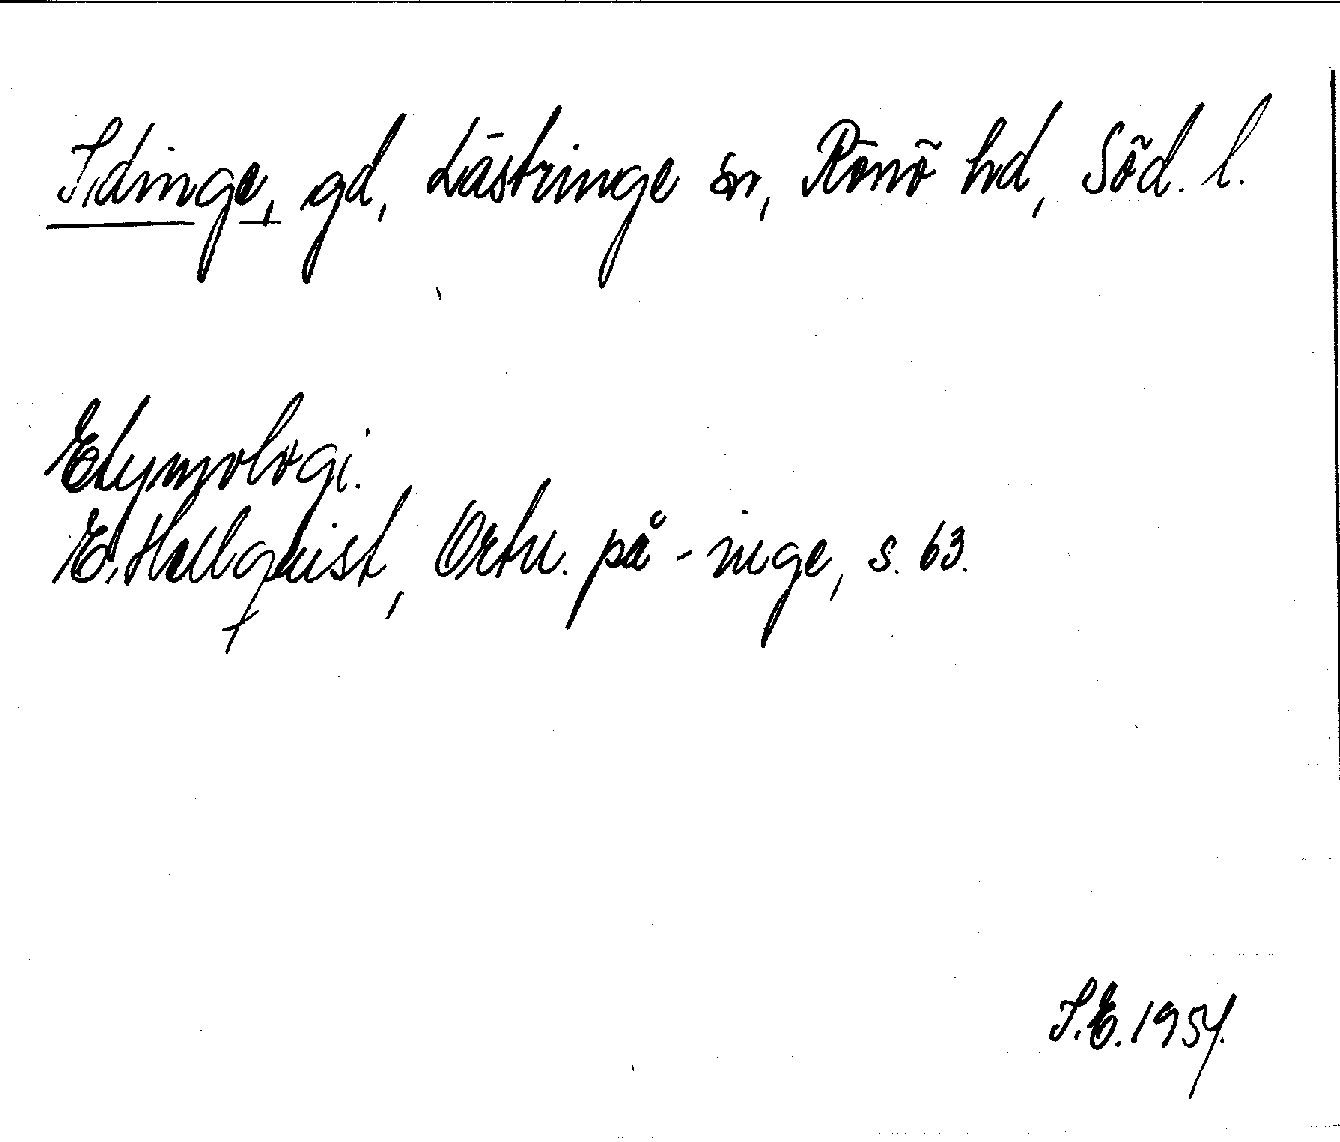 Idinge, gd, Lästringe sn, Rönö hd, Söd. l.
Etymologi.
E. Hellquist, Ortn. på -inge, s. 63.
I.E. 1954.